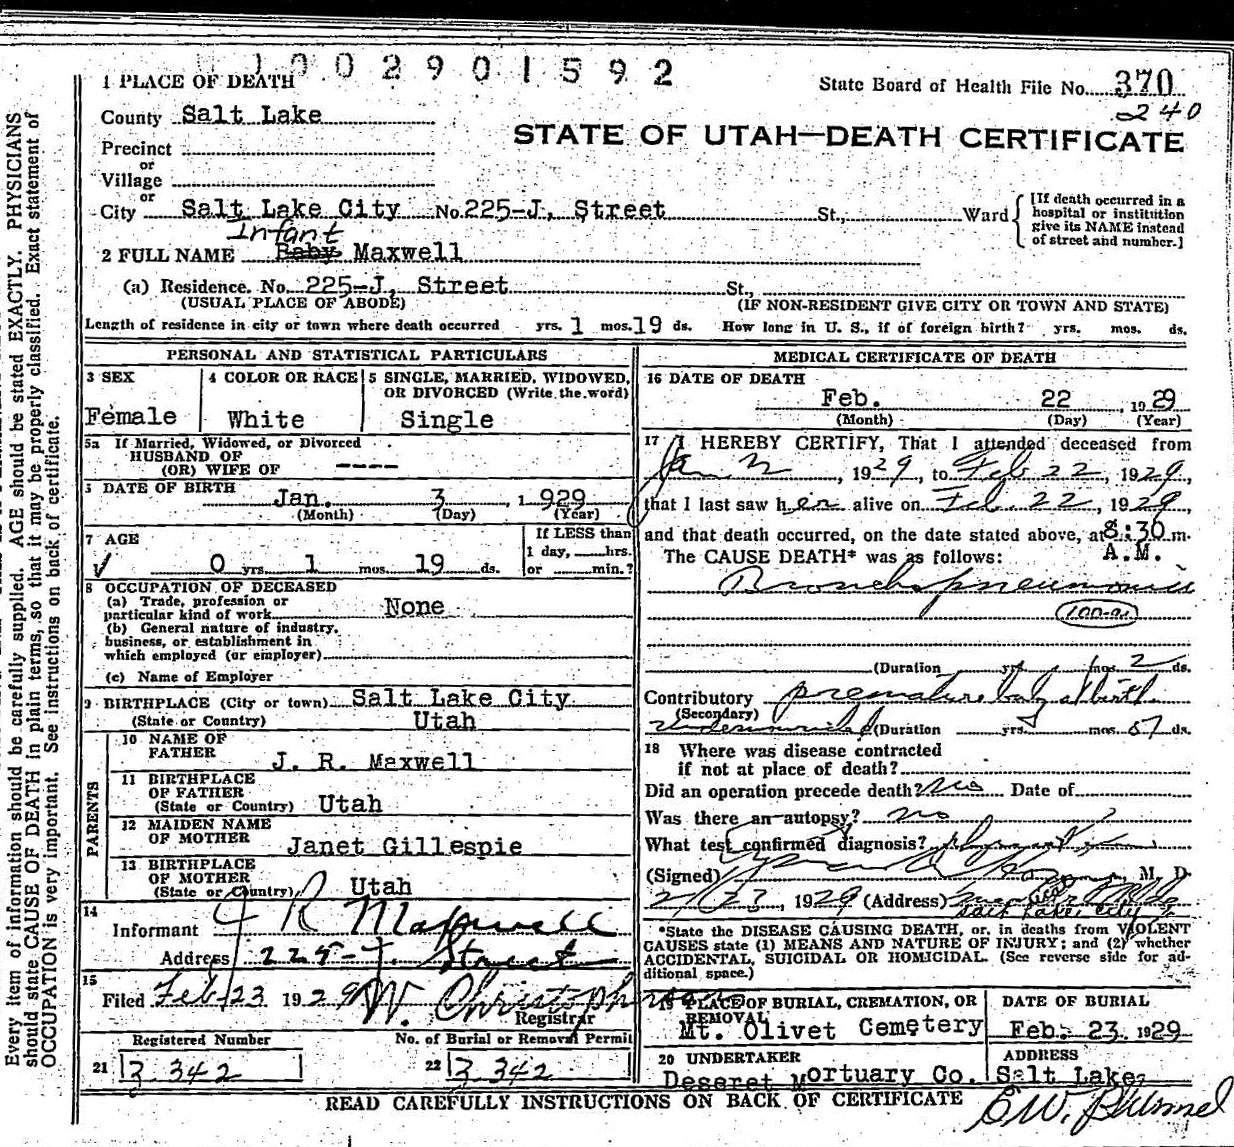 1002901592
1 PLACE OF DEATH
State Board of Health File No. 370
240
County Salt Lake
STATE OF UTAH—DEATH CERTIFICATE
Precinct
or
Village
or
City Salt Lake City No. 225-J, Street St., Ward
[If death occurred in a
hospital or institution
give its NAME instead
of street and number.]
Infant
2 FULL NAME Baby Maxwell
(a) Residence. No. 225-J, Street St.,
(USUAL PLACE OF ABODE) (IF NON-RESIDENT GIVE CITY OR TOWN AND STATE)
Length of residence in city or town where death occurred yrs. 1 mos. 19 ds. How long in U. S., if of foreign birth? yrs. mos. ds.
PERSONAL AND STATISTICAL PARTICULARS
3 SEX
Female
4 COLOR OR RACE
White
5 SINGLE, MARRIED, WIDOWED,
OR DIVORCED (Write the word)
Single
5a If Married, Widowed, or Divorced
HUSBAND OF
(OR) WIFE OF ----
DATE OF BIRTH
Jan. 3, 1929
(Month) (Day) (Year)
7 AGE
0 yrs. 1 mos. 19 ds.
If LESS than
1 day, hrs.
or min.?
8 OCCUPATION OF DECEASED
(a) Trade, profession or
particular kind of work None
(b) General nature of industry,
business, or establishment in
which employed (or employer)
(c) Name of Employer
9 BIRTHPLACE (City or town) Salt Lake City
(State or Country) Utah
PARENTS
10 NAME OF
FATHER J. R. Maxwell
11 BIRTHPLACE
OF FATHER
(State or Country) Utah
12 MAIDEN NAME
OF MOTHER Janet Gillespie
13 BIRTHPLACE
OF MOTHER
(State or Country) Utah
14
Informant J R Maxwell
Address 225-J. Street
15
Filed Feb 23 1929 W. Christopherson
Registrar
Registered Number No. of Burial or Removal Permit
21 3342 22 3342
MEDICAL CERTIFICATE OF DEATH
16 DATE OF DEATH
Feb. 22, 1929
(Month) (Day) (Year)
17 I HEREBY CERTIFY, That I attended deceased from
Jan 1929, to Feb 22, 1929,
that I last saw her alive on Feb. 22, 1929,
and that death occurred, on the date stated above, at 8:30 m.
The CAUSE DEATH* was as follows: A.M.
Bronchopneumonia
100-a.
(Duration yrs. mos. 2 ds.
Contributory premature baby at birth
(Secondary) (Duration yrs. mos. 51 ds.
18 Where was disease contracted
if not at place of death?
Did an operation precede death? No Date of
Was there an autopsy? no
What test confirmed diagnosis?
(Signed) , M. D.
2/23, 1929 (Address)
Salt Lake City
*State the DISEASE CAUSING DEATH, or, in deaths from VIOLENT
CAUSES state (1) MEANS AND NATURE OF INJURY; and (2) whether
ACCIDENTAL, SUICIDAL OR HOMICIDAL. (See reverse side for ad-
ditional space.)
19 PLACE OF BURIAL, CREMATION, OR
REMOVAL
Mt. Olivet Cemetery
DATE OF BURIAL
Feb. 23, 1929
20 UNDERTAKER
Deseret Mortuary Co.
ADDRESS
Salt Lake,
READ CAREFULLY INSTRUCTIONS ON BACK OF CERTIFICATE
Every item of information should be carefully supplied. AGE should be stated EXACTLY. PHYSICIANS
should state CAUSE OF DEATH in plain terms, so that it may be properly classified. Exact statement of
OCCUPATION is very important. See instructions on back of certificate.